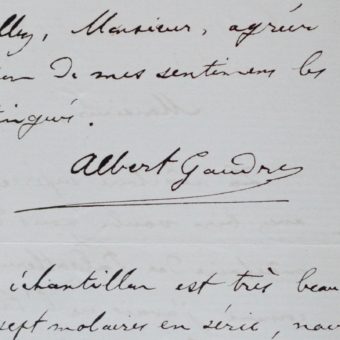 Monsieur, agréer
de mes sentimens les
tingués.
Albert Gaudry
échantillon est très beau
sept molaires en série,